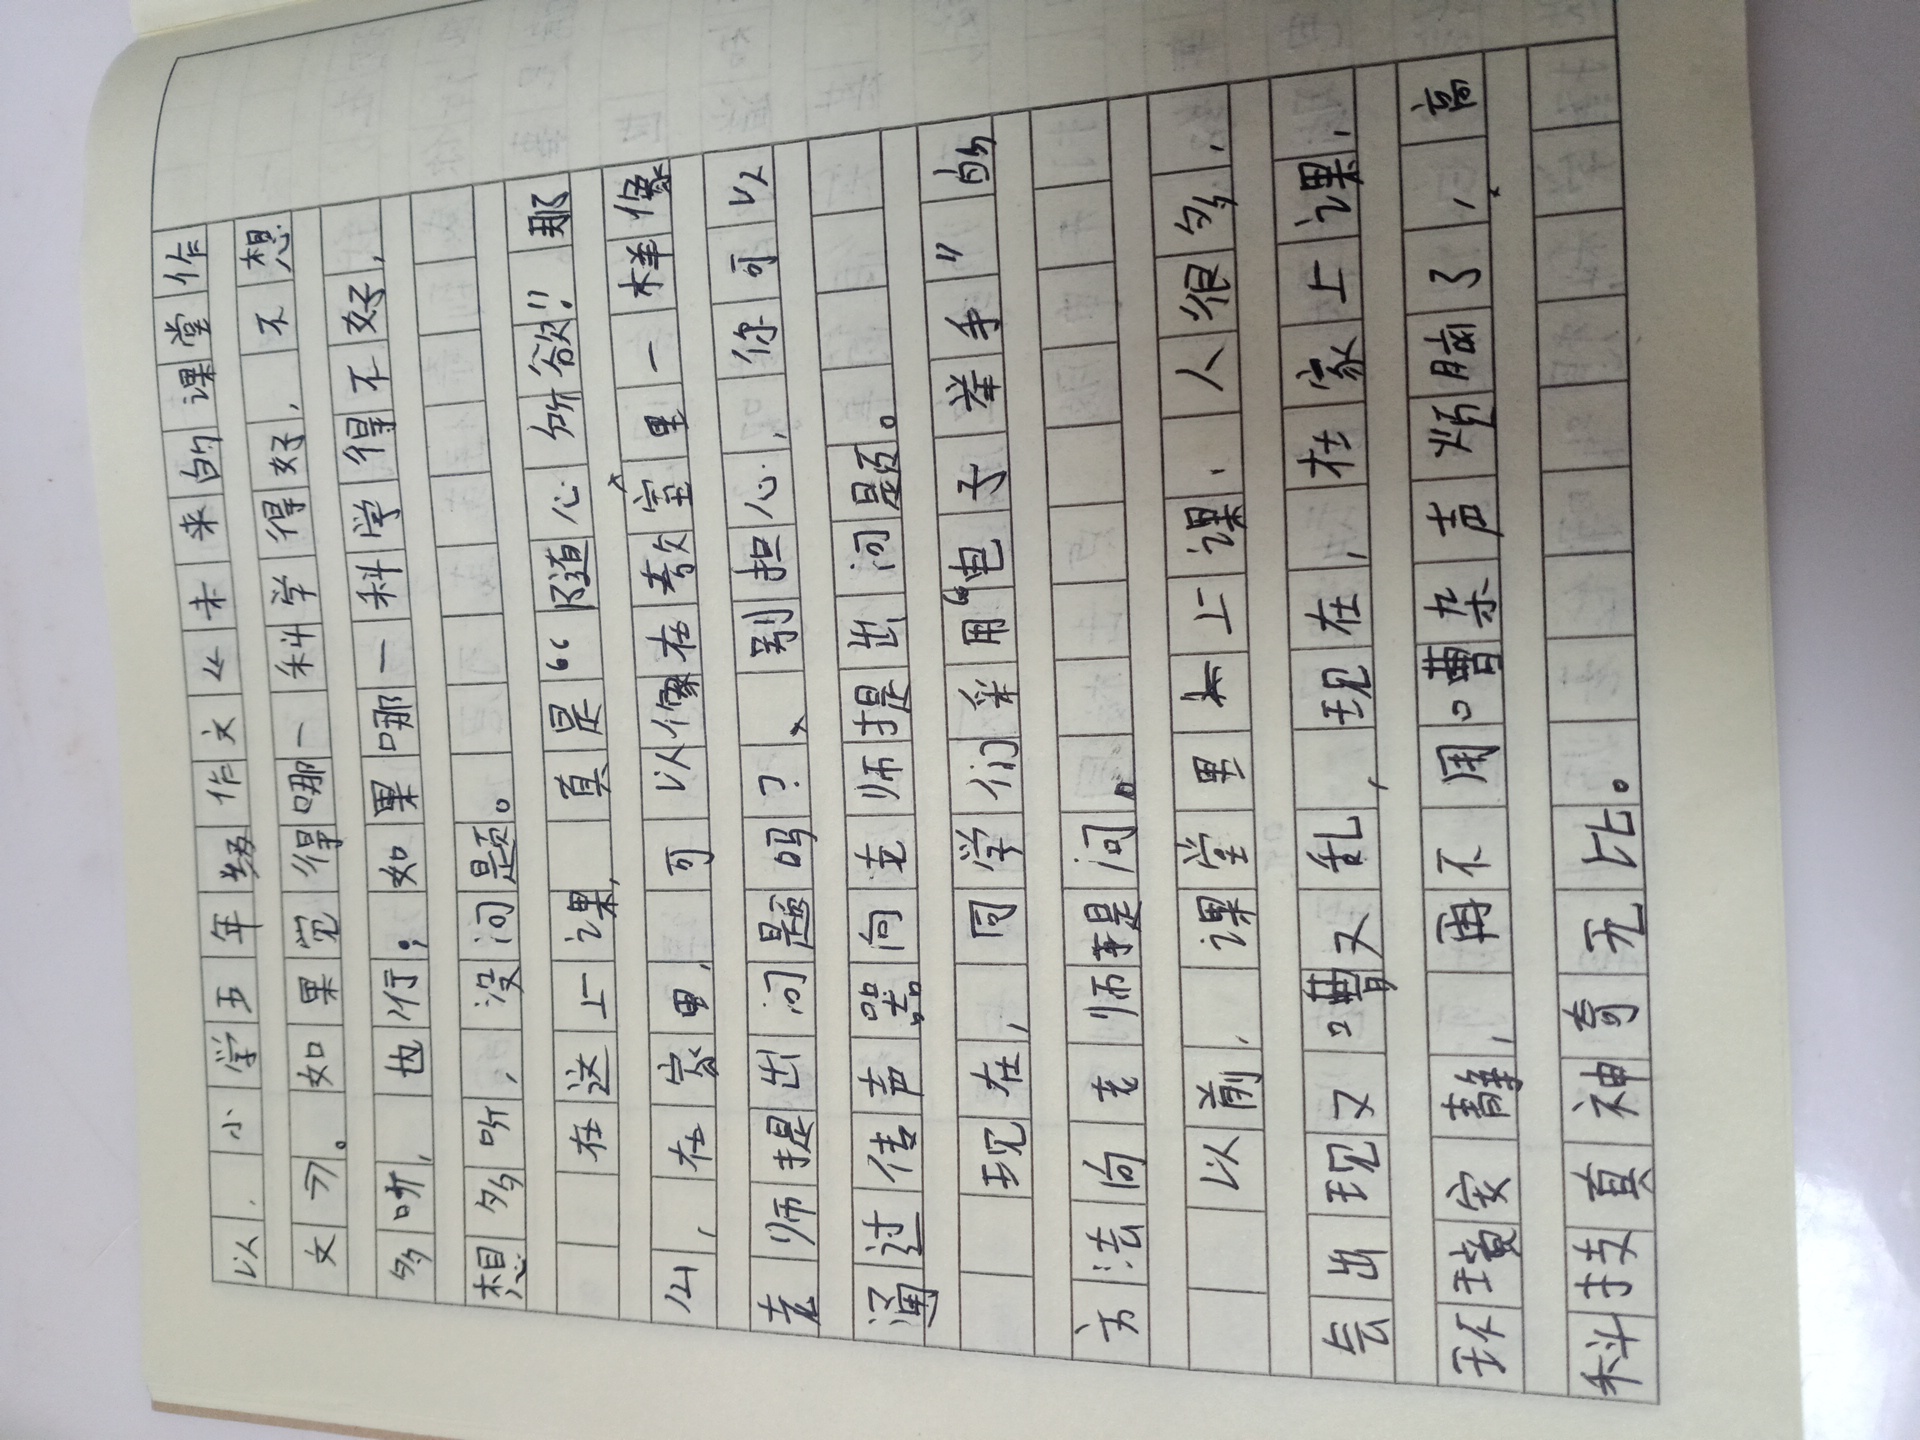 以，小学五年级作文《未来的课堂作
文》。如果觉得哪一科学得好，不想
多听，也行；如果哪一科学得不好，
想多听，没问题。
在这上课，真是“随心所欲”！那
么，在家里，可以像在教室里一样像
老师提出问题吗？别担心，你可以
通过传声器向老师提出问题。
现在，同学们采用“电子举手”的
方法向老师提问。
以前，课堂里上课，人很多，
会出现又嘈又乱，现在，在家上课，
环境安静，再不用嘈杂声烦脑了，高
科技真神奇无比。